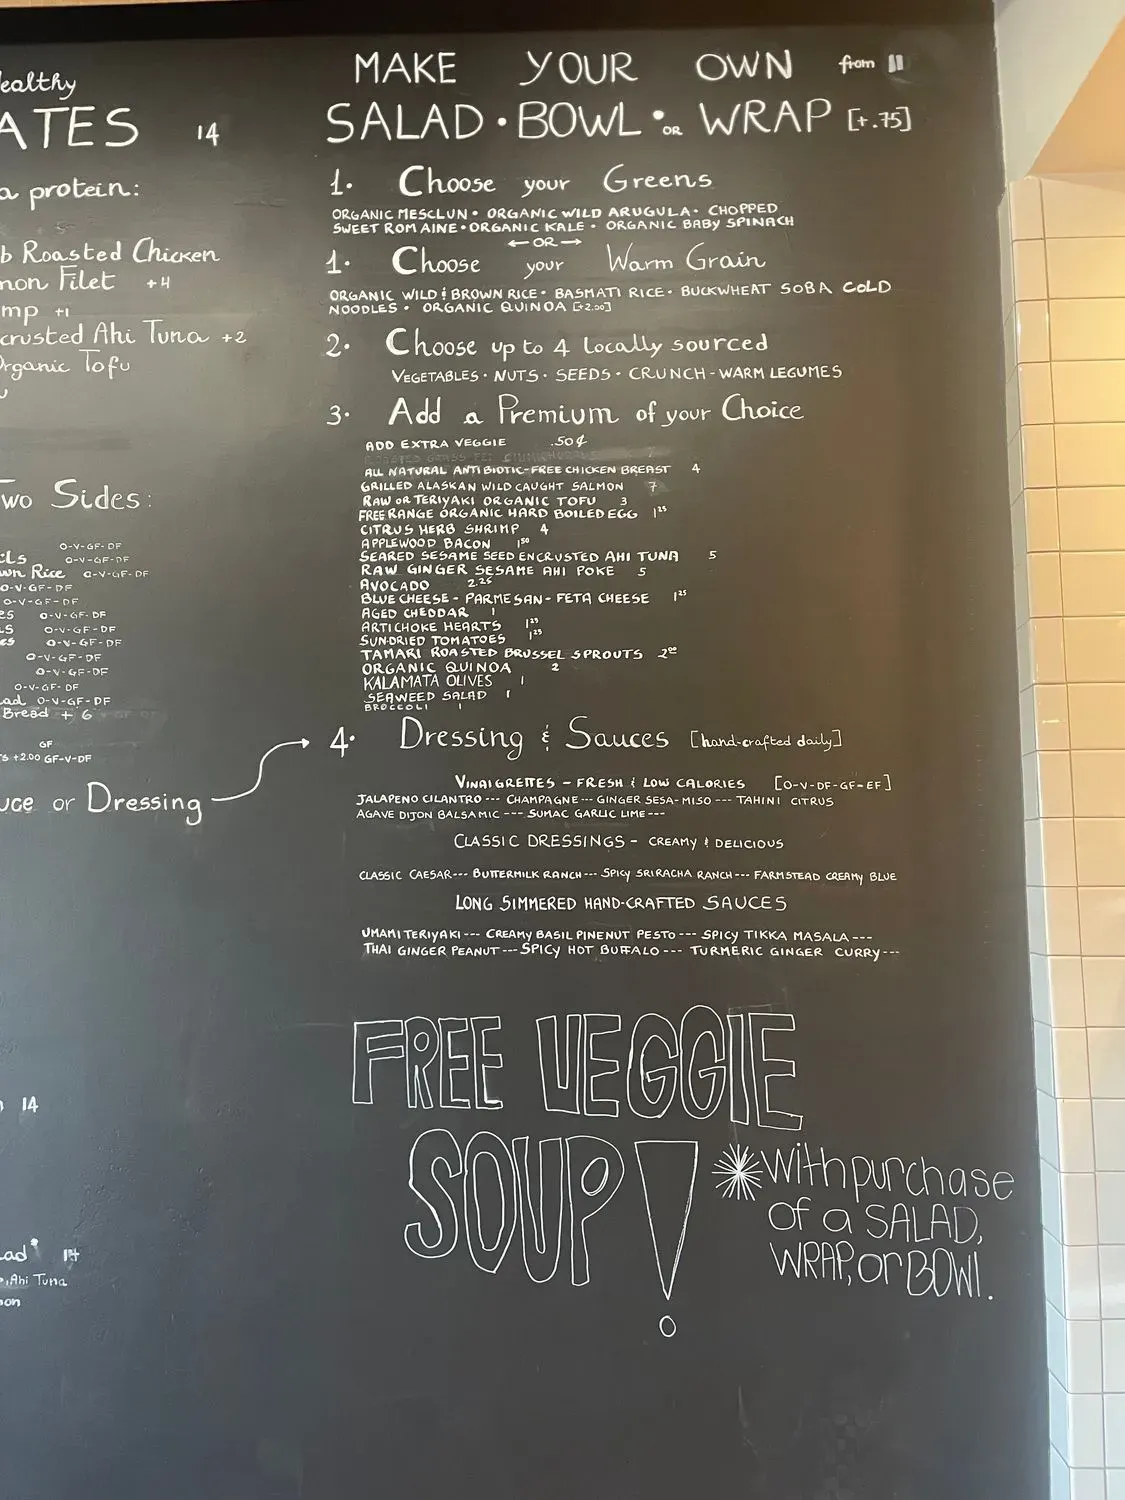 ealthy
ATES 14
a protein:
b Roasted Chicken
mon Filet +4
mp +1
crusted Ahi Tuna +2
Organic Tofu
Two Sides:
O-V-GF-DF
ils O-V-GF-DF
wn Rice O-V-GF-DF
O-V-GF-DF
O-V-GF-DF
es O-V-GF-DF
LS O-V-GF-DF
es O-V-GF-DF
O-V-GF-DF
O-V-GF-DF
O-V-GF-DF
ad O-V-GF-DF
Bread + 6
GF
s +2.00 GF-V-DF
uce or Dressing
14
ad* 14
, Ahi Tuna
on
MAKE YOUR OWN from 11
SALAD • BOWL • OR WRAP [+.75]
1. Choose your Greens
ORGANIC MESCLUN • ORGANIC WILD ARUGULA • CHOPPED
SWEET ROMAINE • ORGANIC KALE • ORGANIC BABY SPINACH
← OR →
1. Choose your Warm Grain
ORGANIC WILD & BROWN RICE • BASMATI RICE • BUCKWHEAT SOBA COLD
NOODLES • ORGANIC QUINOA [+2.00]
2. Choose up to 4 locally sourced
VEGETABLES • NUTS • SEEDS • CRUNCH - WARM LEGUMES
3. Add a Premium of your Choice
ADD EXTRA VEGGIE .50¢
ALL NATURAL ANTIBIOTIC-FREE CHICKEN BREAST 4
GRILLED ALASKAN WILD CAUGHT SALMON 7
RAW OR TERIYAKI ORGANIC TOFU 3
FREE RANGE ORGANIC HARD BOILED EGG 1.25
CITRUS HERB SHRIMP 4
APPLEWOOD BACON 1.50
SEARED SESAME SEED ENCRUSTED AHI TUNA 5
RAW GINGER SESAME AHI POKE 5
AVOCADO 2.25
BLUE CHEESE - PARMESAN - FETA CHEESE 1.25
AGED CHEDDAR 1
ARTICHOKE HEARTS 1.25
SUN-DRIED TOMATOES 1.25
TAMARI ROASTED BRUSSEL SPROUTS 2.00
ORGANIC QUINOA 2
KALAMATA OLIVES 1
SEAWEED SALAD 1
BROCCOLI 1
4. Dressing & Sauces [hand-crafted daily]
VINAIGRETTES - FRESH & LOW CALORIES [O-V-DF-GF-EF]
JALAPENO CILANTRO --- CHAMPAGNE --- GINGER SESA-MISO --- TAHINI CITRUS
AGAVE DIJON BALSAMIC --- SUMAC GARLIC LIME ---
CLASSIC DRESSINGS - CREAMY & DELICIOUS
CLASSIC CAESAR --- BUTTERMILK RANCH --- SPICY SRIRACHA RANCH --- FARMSTEAD CREAMY BLUE
LONG SIMMERED HAND-CRAFTED SAUCES
UMAMI TERIYAKI --- CREAMY BASIL PINENUT PESTO --- SPICY TIKKA MASALA ---
THAI GINGER PEANUT --- SPICY HOT BUFFALO --- TURMERIC GINGER CURRY ---
FREE VEGGIE
SOUP!
*with purchase
of a SALAD,
WRAP, or BOWl.